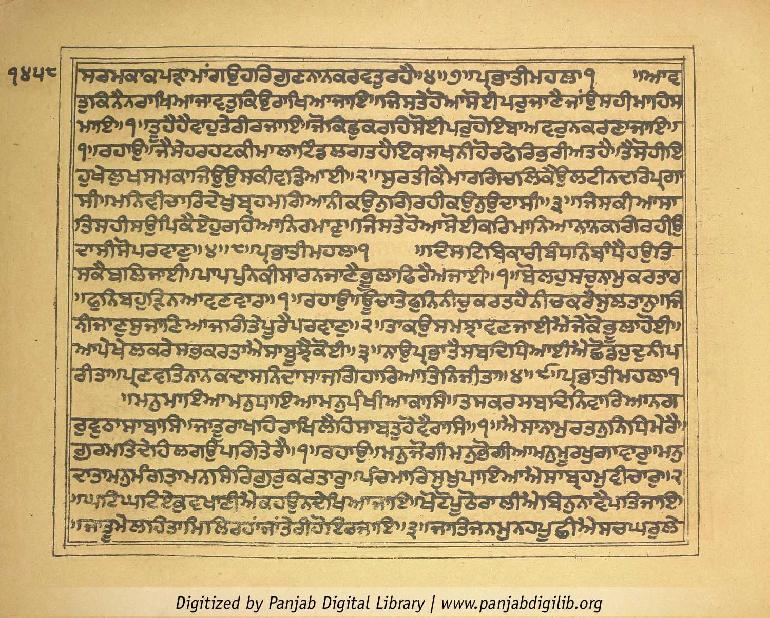 ੧੪੫੮
ਸਰਮਕਾਕਪੜਾਮਾਂਗਉਹਰਿਗੁਣਨਾਨਕਰਵਤੁਰਹੈ॥੪॥੭॥ਪ੍ਰਭਾਤੀਮਹਲਾ੧ ॥ਆਵ
ਤੁਕਿਨੈਨਰਾਖਿਆਜਾਵਤੁਕਿਉਰਾਖਿਆਜਾਇ॥ਜਿਸਤੇਹੋਆਸੋਈਪਰੁਜਾਣੈਜਾਂਉਸਹੀਮਾਹਿਸ
ਮਾਇ॥੧॥ਤੂਹੈਹੈਵਾਹੁਤੇਰੀਰਜਾਇ॥ਜੋਕਿਛੁਕਰਹਿਸੋਈਪਰੁਹੋਇਬਾਅਵਰੁਨਕਰਣਾਜਾਇ॥
੧॥ਰਹਾਉ॥ਜੈਸੇਹਰਹਟਕੀਮਾਲਾਟਿੰਡਲਗਤਹੈਇਕਸਖਨੀਹੋਰਫੇਰਿਭਰੀਅਤਹੈ॥ਤੈਸੋਹੀਇ
ਹੁਖੇਲੁਖਸਮਕਾਜਿਉਉਸਕੀਵਡਿਆਈ॥੨॥ਸੁਰਤੀਕੈਮਾਰਗਿਚਲਿਕੈਉਲਟੀਨਦਰਿਪ੍ਰਗਾ
ਸੀ॥ਮਨਿਵੀਚਾਰਿਦੇਖੁਬ੍ਰਹਮਗਿਆਨੀਕਉਨੁਗਿਰਹੀਕਉਨੁਉਦਾਸੀ॥੩॥ਜਿਸਕੀਆਸਾ
ਤਿਸਹੀਸਉਪਿਕੈਏਹੁਰਹਿਆਨਿਰਬਾਣੁ॥ਜਿਸਤੇਹੋਆਸੋਈਕਰਿਮਾਨਿਆਨਾਨਕਗਿਰਹੀਉ
ਦਾਸੀਸੋਪਰਵਾਣੁ॥੪॥੮॥ਪ੍ਰਭਾਤੀਮਹਲਾ੧ ॥ਦਿਸਟਿਬਿਕਾਰੀਬੰਧਨਿਬਾਂਧੈਹਉਤਿ
ਸਕੈਬਲਿਜਾਈ॥ਪਾਪਪੁੰਨਕੀਸਾਰਨਜਾਣੈਭੂਲਾਫਿਰੈਅਜਾਈ॥੧॥ਬੋਲਹੁਸਚੁਨਾਮੁਕਰਤਾਰ
॥ਫੁਨਿਬਹੁੜਿਨਆਵਣਵਾਰ॥੧॥ਰਹਾਉ॥ਊਚਾਤੇਫੁਨਿਨੀਚੁਕਰਤੁਹੈਨੀਚਕਰੈਸੁਲਤਾਨੁ॥ਜਿ
ਨੀਜਾਣੁਸੁਜਾਣਿਆਜਗਿਤੇਪੂਰੇਪਰਵਾਣੁ॥੨॥ਤਾਕਉਸਮਝਾਵਣਜਾਈਐਜੇਕੋਭੂਲਾਹੋਈ॥
ਆਪੇਖੇਲਕਰੇਸਭਕਰਤਾਐਸਾਬੂਝੈਕੋਈ॥੩॥ਨਾਉਪ੍ਰਭਾਤੈਸਬਦਿਧਿਆਈਐਛੋਡਹੁਦੁਨੀਪ
ਰੀਤਾ॥ਪ੍ਰਣਵਤਿਨਾਨਕਦਾਸਨਿਦਾਸਾਜਗਿਹਾਰਿਆਤਿਨਿਜੀਤਾ॥੪॥੯॥ਪ੍ਰਭਾਤੀਮਹਲਾ੧
॥ਮਨੁਮਾਇਆਮਨੁਧਾਇਆਮਨੁਪੰਖੀਆਕਾਸਿ॥ਤਸਕਰਸਬਦਿਨਿਵਾਰਿਆਨਗ
ਰੁਵੁਠਾਸਾਬਾਸਿ॥ਜਾਤੂਰਾਖਹਿਰਾਖਿਲੈਹਿਸਾਬਤੁਹੋਵੈਰਾਸਿ॥੧॥ਐਸਾਨਾਮੁਰਤਨੁਨਿਧਿਮੇਰੈ॥
ਗੁਰਮਤਿਦੇਹਿਲਗਉਪਗਿਤੇਰੈ॥੧॥ਰਹਾਉ॥ਮਨੁਜੋਗੀਮਨੁਭੋਗੀਆਮਨੁਮੂਰਖੁਗਾਵਾਰੁ॥ਮਨੁ
ਦਾਤਾਮਨੁਮੰਗਤਾਮਨਸਿਰਿਗੁਰੁਕਰਤਾਰੁ॥ਪੰਚਮਾਰਿਸੁਖੁਪਾਇਆਐਸਾਬ੍ਰਹਮੁਵੀਚਾਰੁ॥੨
॥ਘਟਿਘਟਿਏਕੁਵਖਾਣੀਐਕਹਉਨਦੇਖਿਆਜਾਇ॥ਖੋਟੋਪੂਠੋਰਾਲੀਐਬਿਨੁਨਾਵੈਪਤਿਜਾਇ
॥ਜਾਤੂਮੇਲਹਿਤਾਮਿਲਿਰਹਾਂਜਾਂਤੇਰੀਹੋਇਰਜਾਇ॥੩॥ਜਾਤਿਜਨਮੁਨਹਪੂਛੀਐਸਚਘਰੁਲੇ
Digitized by Panjab Digital Library | www.panjabdigilib.org